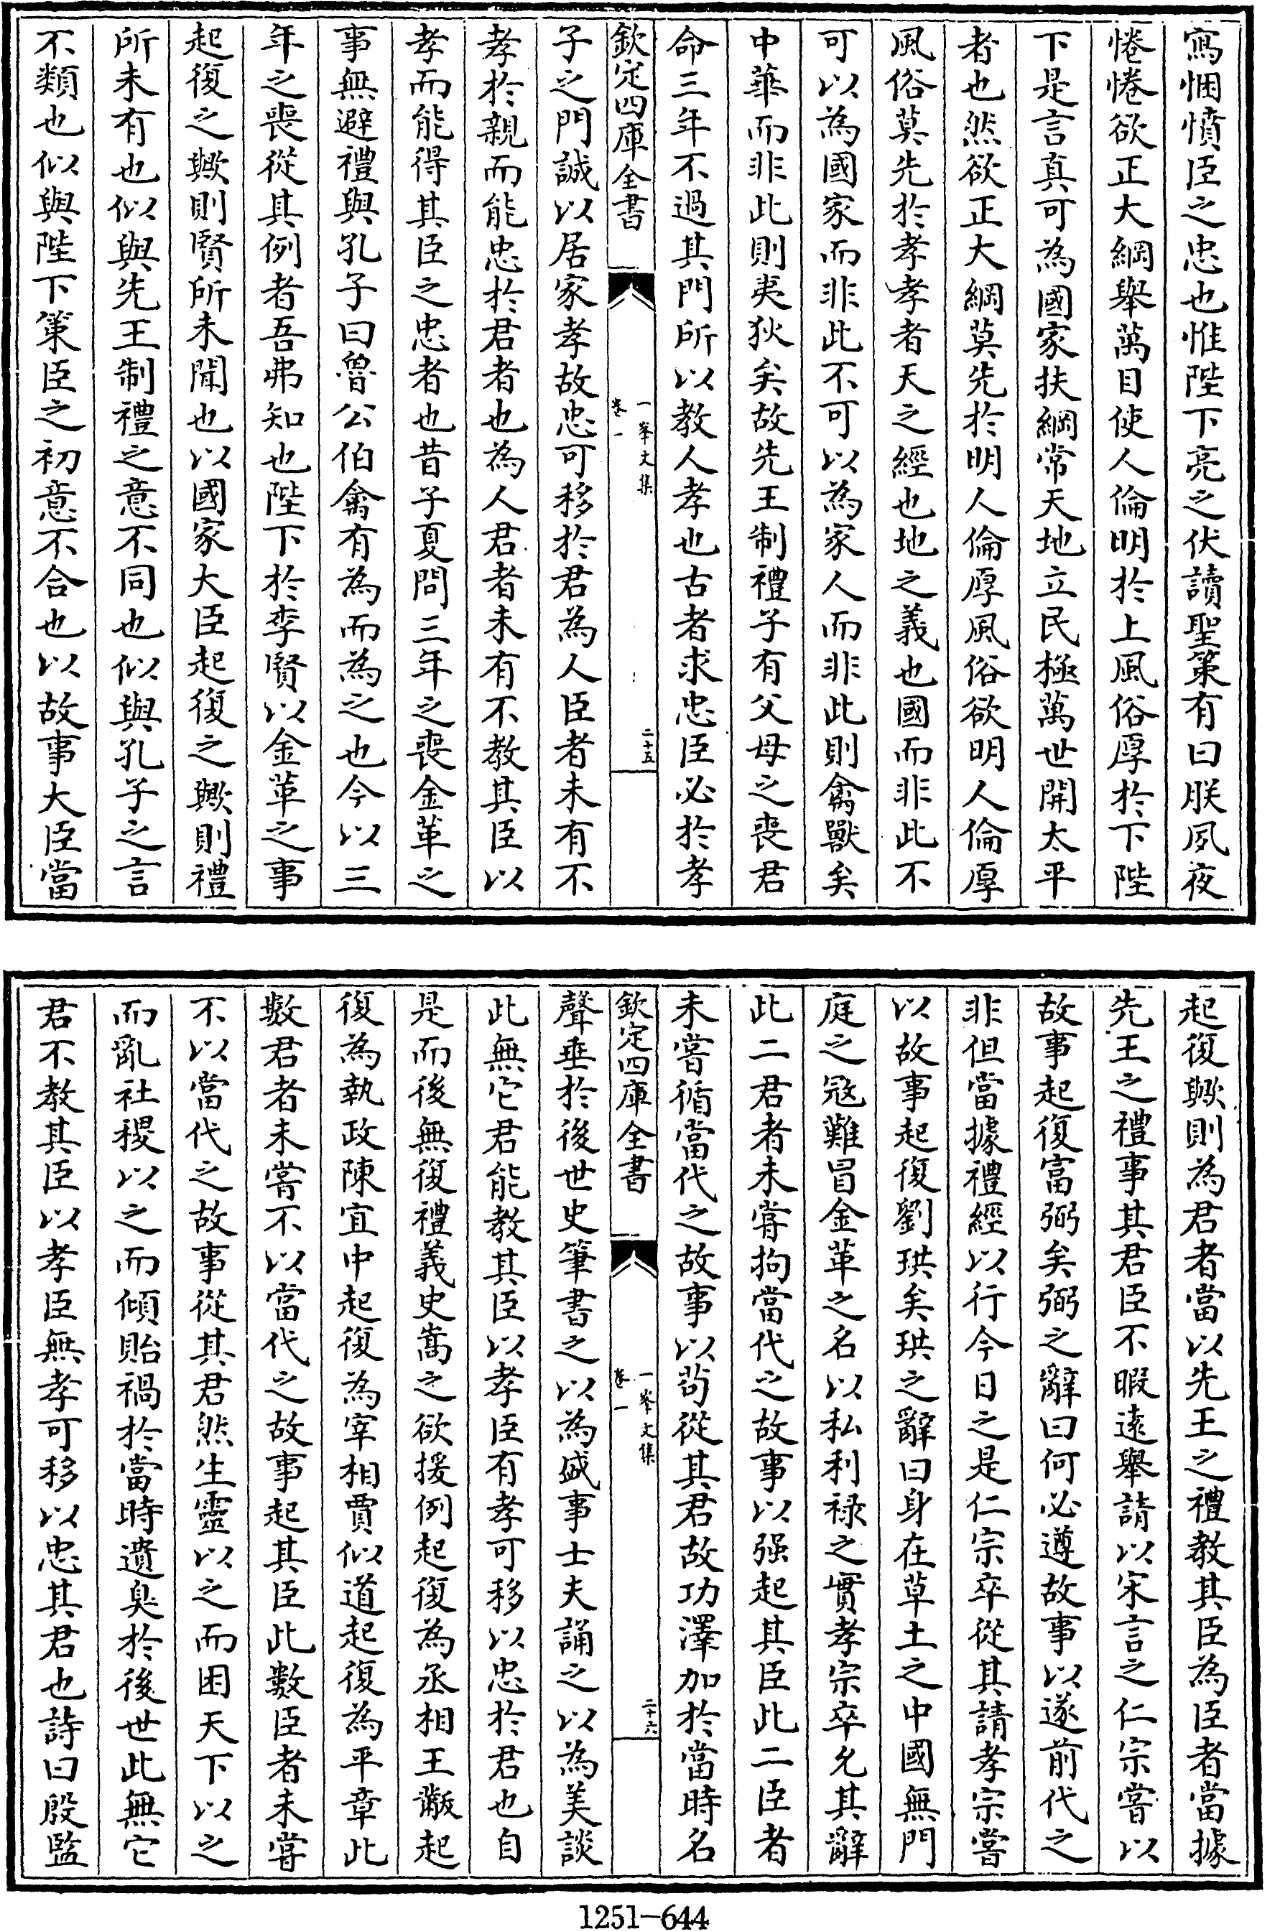 寫悃愊臣之忠也惟陛下亮之伏讀聖策有曰朕夙夜
惓惓欲正大綱舉萬目使人倫明於上風俗厚於下陛
下是言真可為國家扶綱常天地立民極萬世開太平
者也然欲正大綱莫先於明人倫厚風俗欲明人倫厚
風俗莫先於孝孝者天之經也地之義也國而非此不
可以為國家而非此不可以為家人而非此則禽獸矣
中華而非此則夷狄矣故先王制禮子有父母之喪君
命三年不過其門所以教人孝也古者求忠臣必於孝
欽定四庫全書
一峯文集
卷一
二十五
子之門誠以居家孝故忠可移於君為人臣者未有不
孝於親而能忠於君者也為人君者未有不教其臣以
孝而能得其臣之忠者也昔子夏問三年之喪金革之
事無避禮與孔子曰魯公伯禽有為而為之也今以三
年之喪從其例者吾弗知也陛下於李賢以金革之事
起復之歟則賢所未聞也以國家大臣起復之歟則禮
所未有也似與先王制禮之意不同也似與孔子之言
不類也似與陛下策臣之初意不合也以故事大臣當
起復歟則為君者當以先王之禮教其臣為臣者當據
先王之禮事其君臣不暇遠舉請以宋言之仁宗嘗以
故事起復富弼矣弼之辭曰何必遵故事以遂前代之
非但當據禮經以行今日之是仁宗卒從其請孝宗嘗
以故事起復劉珙矣珙之辭曰身在草土之中國無門
庭之冦難冒金革之名以私利禄之實孝宗卒允其辭
此二君者未嘗拘當代之故事以强起其臣此二臣者
未嘗循當代之故事以苟從其君故功澤加於當時名
欽定四庫全書
一峯文集
卷一
二十六
聲垂於後世史筆書之以為盛事士夫誦之以為美談
此無它君能教其臣以孝臣有孝可移以忠於君也自
是而後無復禮義史嵩之欲援例起復為丞相王黻起
復為執政陳宜中起復為宰相賈似道起復為平章此
數君者未嘗不以當代之故事起其臣此數臣者未嘗
不以當代之故事從其君然生靈以之而困天下以之
而亂社稷以之而傾貽禍於當時遺臭於後世此無它
君不教其臣以孝臣無孝可移以忠其君也詩曰殷監
1251-644